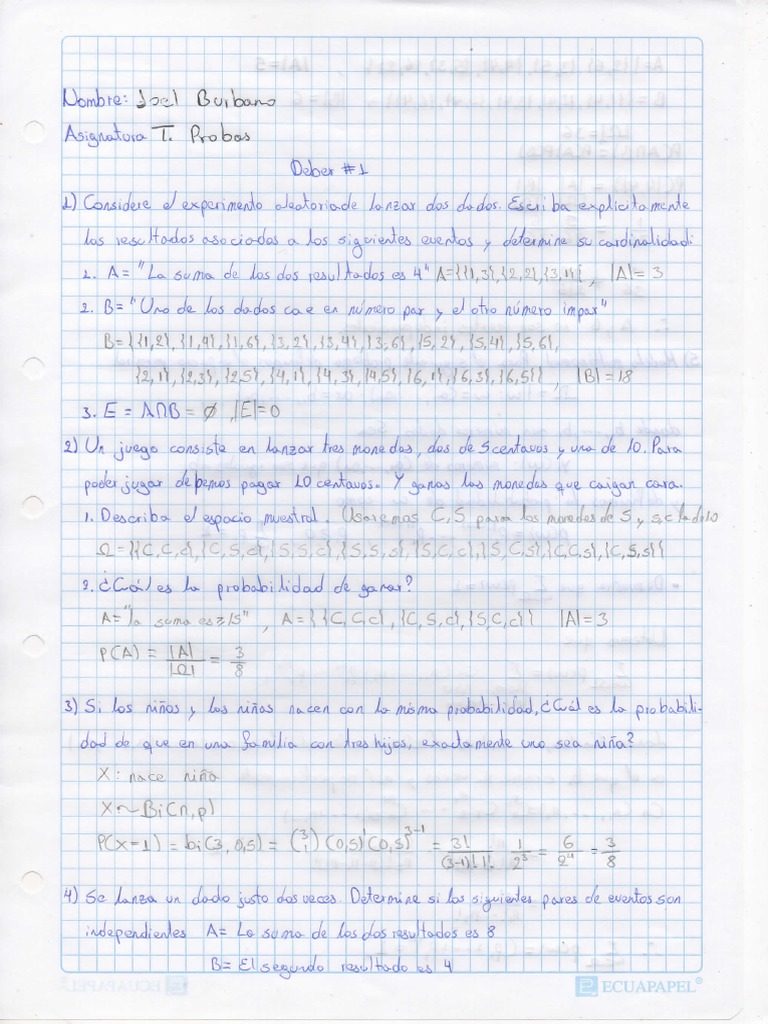 Nombre: Joel Burbano
Asignatura T. Probas
Deber #1
1) Considere el experimento aleatorio de lanzar dos dados. Escriba explicitamente
los resultados asociados a los siguientes eventos y determine su cardinalidad:
1. A= "La suma de los dos resultados es 4" A={{1,3},{2,2},{3,1}}, |A|= 3
2. B= "Uno de los dados cae en número par y el otro número impar"
B={{1,2},{1,4},{1,6},{3,2},{3,4},{3,6},{5,2},{5,4},{5,6},
{2,1},{2,3},{2,5},{4,1},{4,3},{4,5},{6,1},{6,3},{6,5}}, |B|=18
3. E = A∩B = ∅, |E|=0
2) Un juego consiste en lanzar tres monedas, dos de 5 centavos y una de 10. Para
poder jugar debemos pagar 10 centavos. Y ganas las monedas que caigan cara.
1. Describa el espacio muestral. Usaremos C,S para las monedas de 5 y s,c la de 10
Ω={{C,C,c},{C,S,c},{S,S,c},{S,S,s},{S,C,c},{S,C,s},{C,C,s},{C,S,s}}
2. ¿Cuál es la probabilidad de ganar?
A="la suma es ≥15", A={{C,C,c},{C,S,c},{S,C,c}} |A|=3
P(A) = |A|/|Ω| = 3/8
3) Si los niños y las niñas nacen con la misma probabilidad, ¿Cuál es la probabili-
dad de que en una familia con tres hijos, exactamente uno sea niña?
X: nace niña
X~Bi(n,p)
P(X=1) = bi(3,0,5) = (3 1)(0,5)¹(0,5)³⁻¹ = 3!/(3-1)!1! 1/2³ = 6/2⁴ = 3/8
4) Se lanza un dado justo dos veces. Determine si los siguientes pares de eventos son
independientes A= La suma de los dos resultados es 8
B= El segundo resultado es 4
ECUAPAPEL